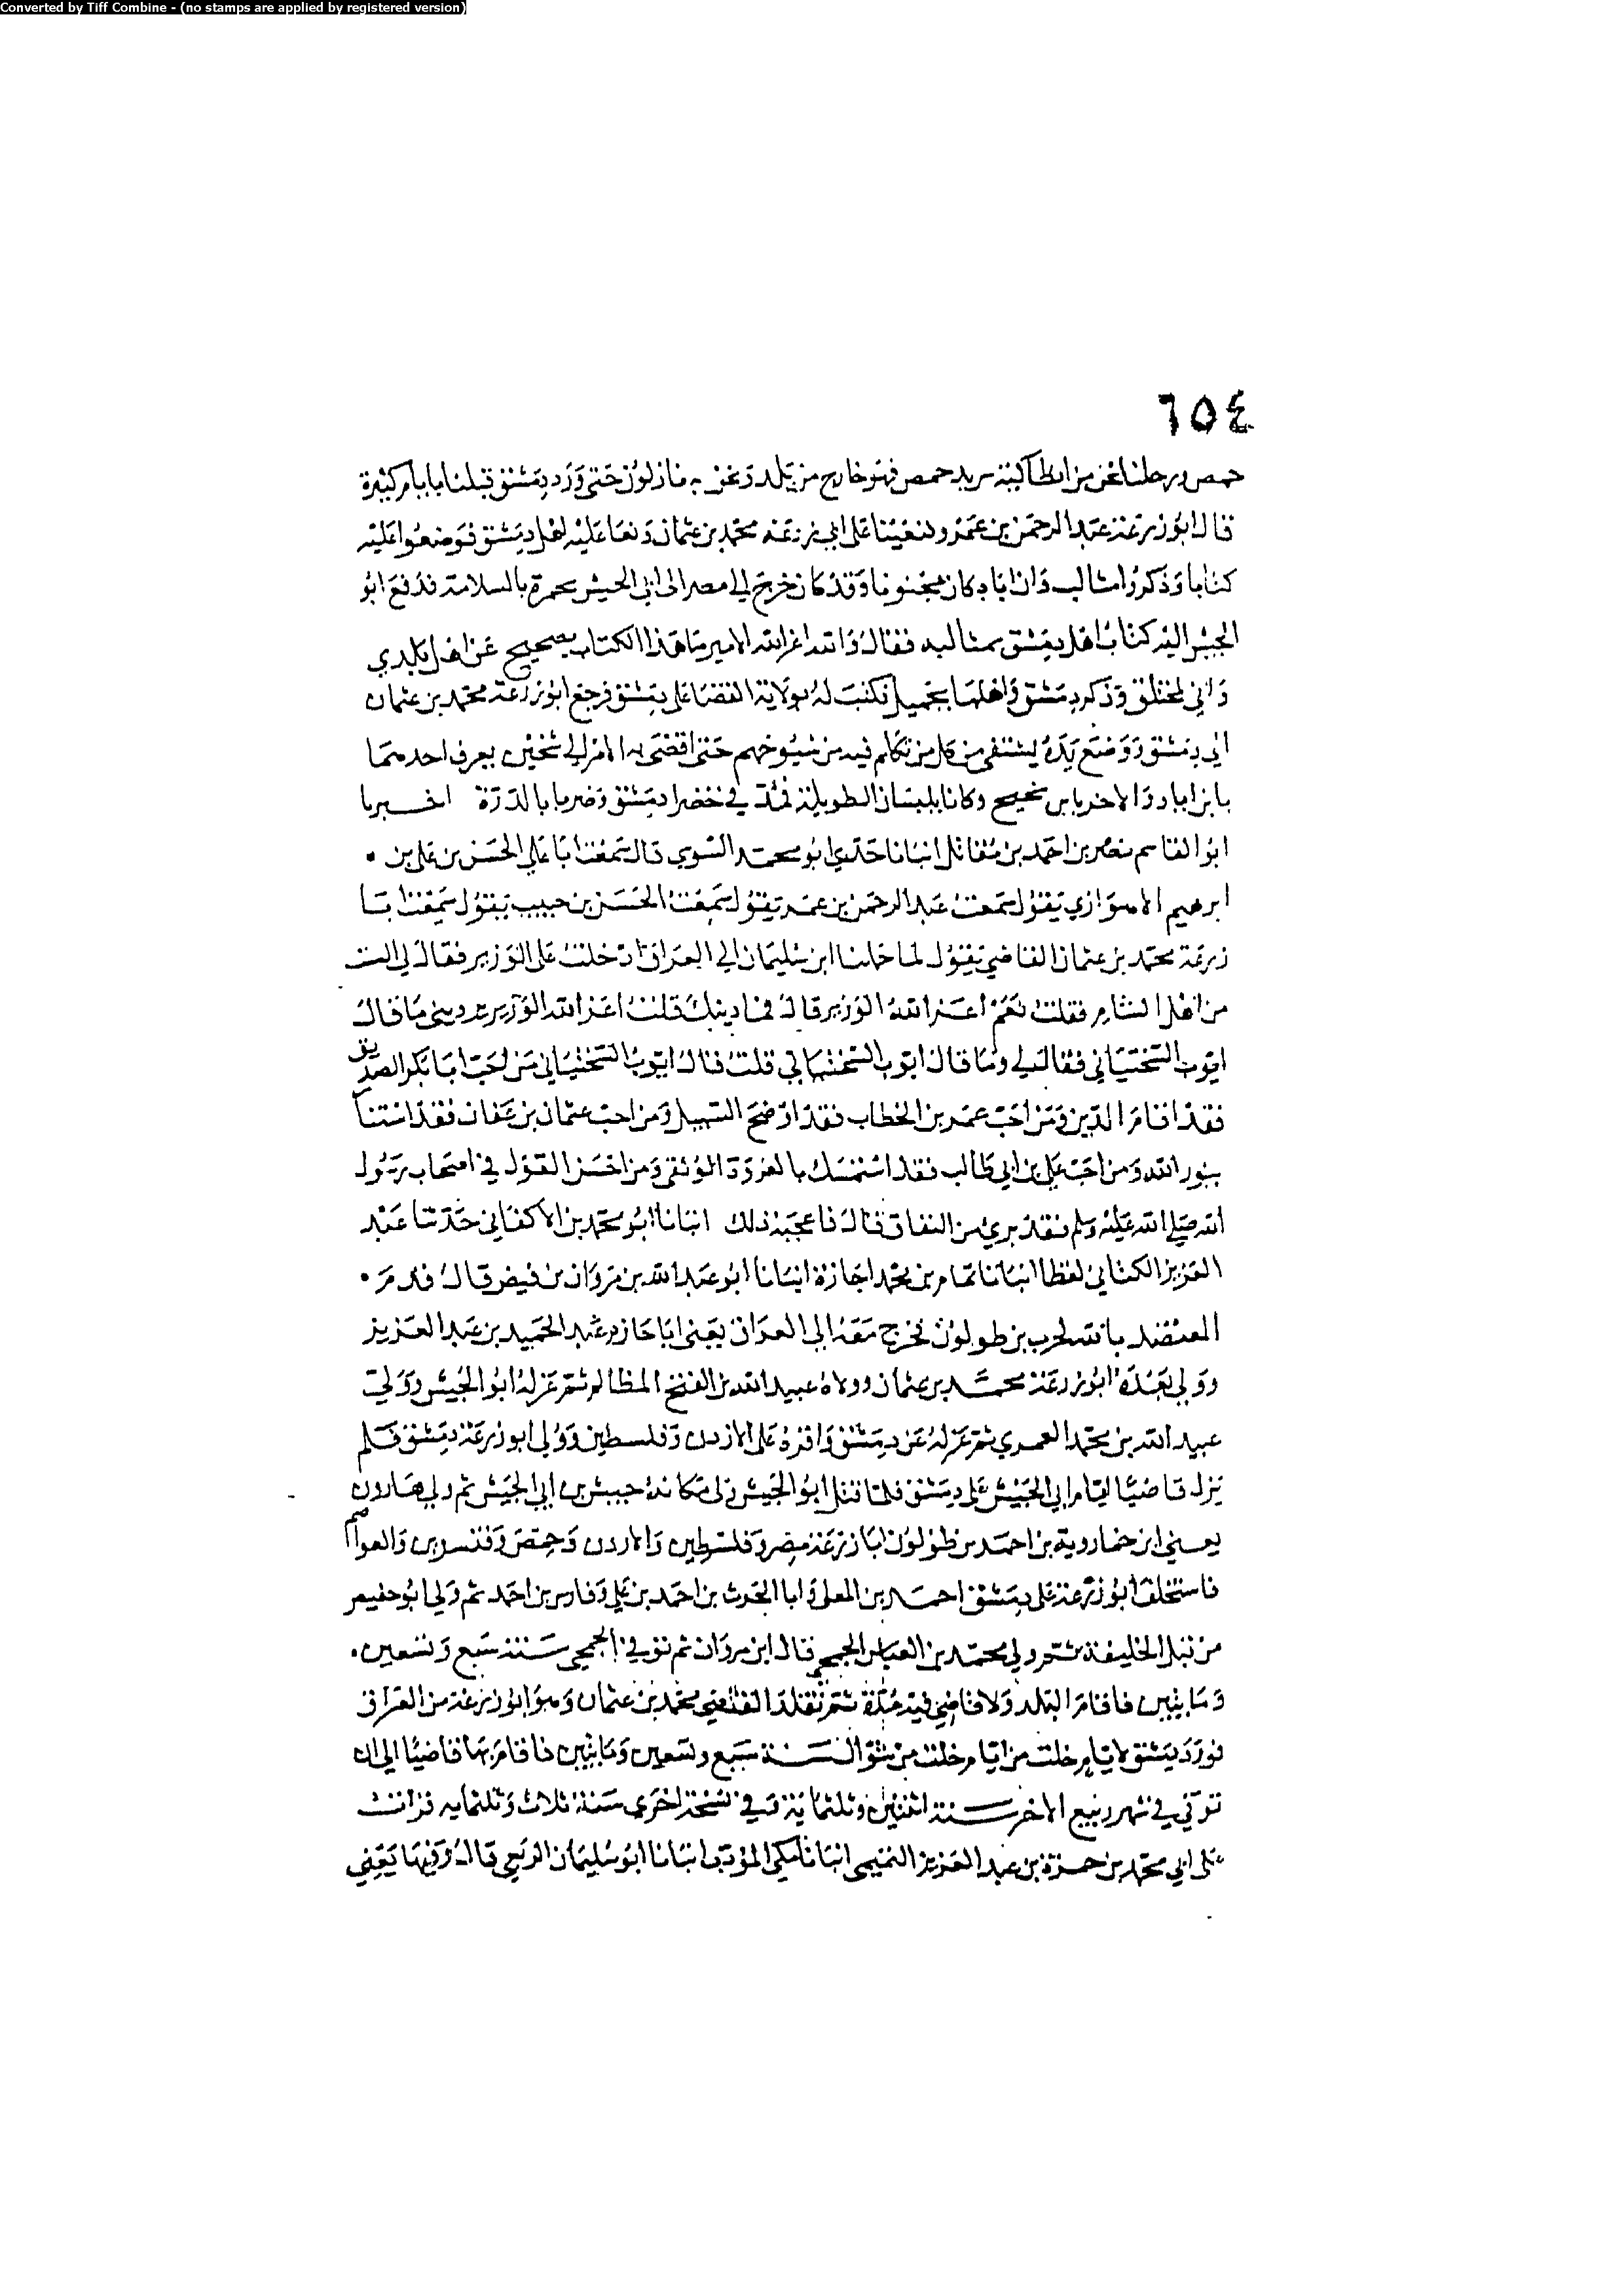 Converted by Tiff Combine - (no stamps are applied by registered version)
٦٥٤
حمص ورحلنا نحن من انطاكية نريد حمص فهو خارج من بلد ونحن به نازلون حتى ورد دمشق قبلنا بايام كثيرة
قال ابو زرعة عبد الرحمن بن عمرو على ابي زرعة محمد بن عثمان ونعا عليه اهل دمشق فوضعوا عليه
كتابا وذكروا مثالب وان اباه كان مجنونا وقد كان خرج الى مصر الى ابي الجيش بالسلامة فدفع ابو
الجيش اليه كتاب اهل دمشق بمثالبه فقال والله اعز الله الامير ما هذا الكتاب بصحيح عن اهل بلدي
واني لمختلق وذكر دمشق واهلها بجميل فكتب له بولاية القضا على دمشق فرجع ابو زرعة محمد بن عثمان
الى دمشق ووضع يده يشتفى من كل من تكلم فيه من شيوخهم حتى افضى به الامر الى شخين يعرف احدهما
بابن اباد والاخر بابن نجيح وكانا يلبسان الطويلة في خضرا دمشق وضربا بالدرة اخبرنا
ابو القاسم نصر بن احمد بن مقاتل انبانا جدي ابو محمد السوسي قال سمعت ابا علي الحسن بن علي بن
ابرهيم الاهوازي يقول سمعت عبد الرحمن بن عمر يقول سمعت الحسن بن حبيب يقول سمعت ابا
زرعة محمد بن عثمان القاضي يقول لما حملنا ابن سليمان الى العراق ادخلت على الوزير فقال لي انت
من اهل الشام فقلت نعم اعز الله الوزير قال فما دينك قلت اعز الله الوزير ديني ما قال
ايوب السختياني فقال لي وما قال ايوب السختياني قلت قال ايوب السختياني من احب ابا بكر الصديق
فقد اقام الدين ومن احب عمر بن الخطاب فقد اوضح السبيل ومن احب عثمان بن عفان فقد استنا
بنور الله ومن احب علي بن ابي طالب فقد استمسك بالعروة الوثقى ومن احسن القول في اصحاب رسول
الله صلى الله عليه وسلم فقد برئ من النفاق قال فاعجبه ذلك انبانا ابو محمد بن الاكفاني حدثنا عبد
العزيز الكتاني لفظا انبانا تمام بن محمد اجازة انبانا ابو عبد الله بن مروان بن فيض قال قدم
المعتضد بالله لحرب بن طولون فخرج معه الى العراق يعني ابا حازم عبد الحميد بن عبد العزيز
وولي بعده ابو زرعة محمد بن عثمان وولاه عبيد الله بن الفتح المظالم ثم عزله ابو الجيش وولي
عبيد الله بن محمد العمري ثم عزله عن دمشق واقره على الاردن وفلسطين وولي ابو زرعة دمشق فلم
يزل قاضيا ايام ابي الجيش على دمشق فلما قتل ابو الجيش ولى مكانه جيش بن ابي الجيش ثم ولي هارون
يعني ابن خمارويه بن احمد بن طولون ابا زرعة مصر وفلسطين والاردن وحمص وقنسرين والعواصم
فاستخلف ابو زرعة على دمشق احمد بن المعلى وابا الحرث بن احمد بن علي وفارس بن احمد ثم ولي ابو حفص
من قبل الخليفة ثم ولي محمد بن العباس الجمحي قال ابن مروان ثم توفي الجمحي سنة سبع وتسعين
ومايتين فاقام البلد ولا قاضي فيه مدة ثم تقلد القاضي محمد بن عثمان وهو ابو زرعة من العراق
فورد دمشق لايام خلت من ايام خلت من شوال سنة سبع وتسعين ومايتين فاقام بها قاضيا الى ان
توفي في شهر ربيع الاخر سنة اثنتين وثلثماية وفي نسخة اخرى سنة ثلاث وثلثمايه قرات
على ابي محمد بن حمزة بن عبد العزيز التميمي انبانا مكي المؤدب انبانا ابو سليمان الربعي قال وفيها يعني